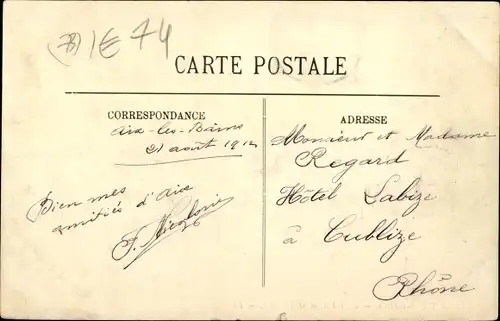 1E 74
CARTE POSTALE
CORRESPONDANCE
Aix-les-Bains
21 août 1912
Bien mes
amitiés d'Aix
ADRESSE
Monsieur et Madame
Regard
Hôtel Labize
à Cublize
Rhône